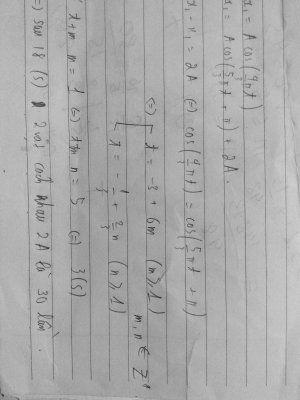 x₁ = A cos(4/3 πt)
x₁ = A cos(5/3 πt + π) + 2A.
x₁ - x₁ = 2A (=) cos(4/3 πt) = cos(5/3 πt + π)
(=) [ t = -3 + 6m (m ≥ 1)
t = -1/3 + 2/3 n (n ≥ 1)
m, n ∈ Z
t m = 1 (=) n = 5 (=) 3(s)
(=) sau 18 (s) 2 vật cách nhau 2A là 30 lần.